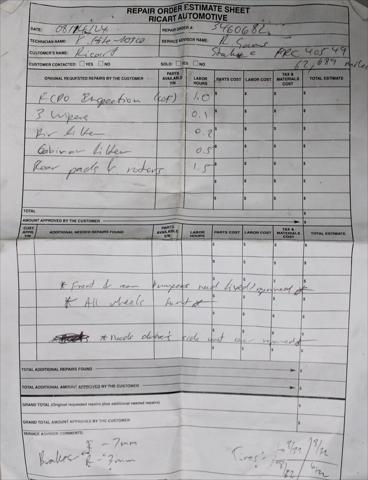 REPAIR ORDER ESTIMATE SHEET
RICART AUTOMOTIVE
DATE: REPAIR ORDER #: 3960682
TECHNICIAN NAME: SERVICE ADVISOR NAME: R.
CUSTOMER'S NAME: Ricart PRC 40549
CUSTOMER CONTACTED: YES NO SOLD: YES NO 62,689 miles
ORIGINAL REQUESTED REPAIRS BY THE CUSTOMER PARTS AVAILABLE Y/N LABOR HOURS PARTS COST LABOR COST TAX & MATERIALS COST TOTAL ESTIMATE
FCPO Inspection (COP) 1.0
3 Wipers 0.1
Air filter 0.2
Cabin air filter 0.5
Rear pads & rotors 1.5
TOTAL
AMOUNT APPROVED BY THE CUSTOMER
CUST. APPR. Y/N ADDITIONAL NEEDED REPAIRS FOUND PARTS AVAILABLE Y/N LABOR HOURS PARTS COST LABOR COST TAX & MATERIALS COST TOTAL ESTIMATE
* Front & rear bumpers need fixed/repaired *
* All wheels *
* Needs driver's side repaired *
TOTAL ADDITIONAL REPAIRS FOUND
TOTAL ADDITIONAL AMOUNT APPROVED BY THE CUSTOMER
GRAND TOTAL (Original requested repairs plus additional needed repairs)
GRAND TOTAL AMOUNT APPROVED BY THE CUSTOMER
SERVICE ADVISOR COMMENTS:
F - 7mm
Brakes R - 3mm Tires